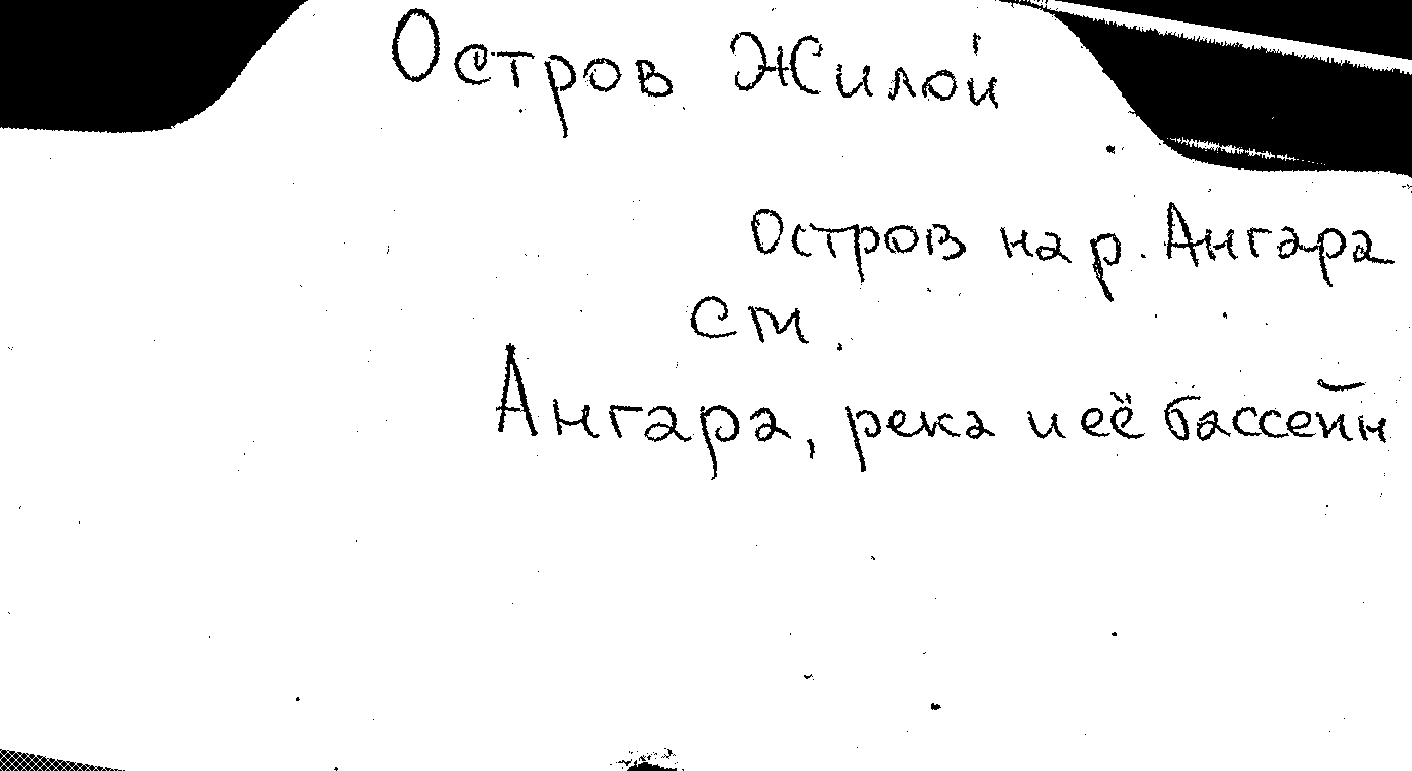 Остров Жилой
Остров на р. Ангара
См.
Ангара, река и её бассейн